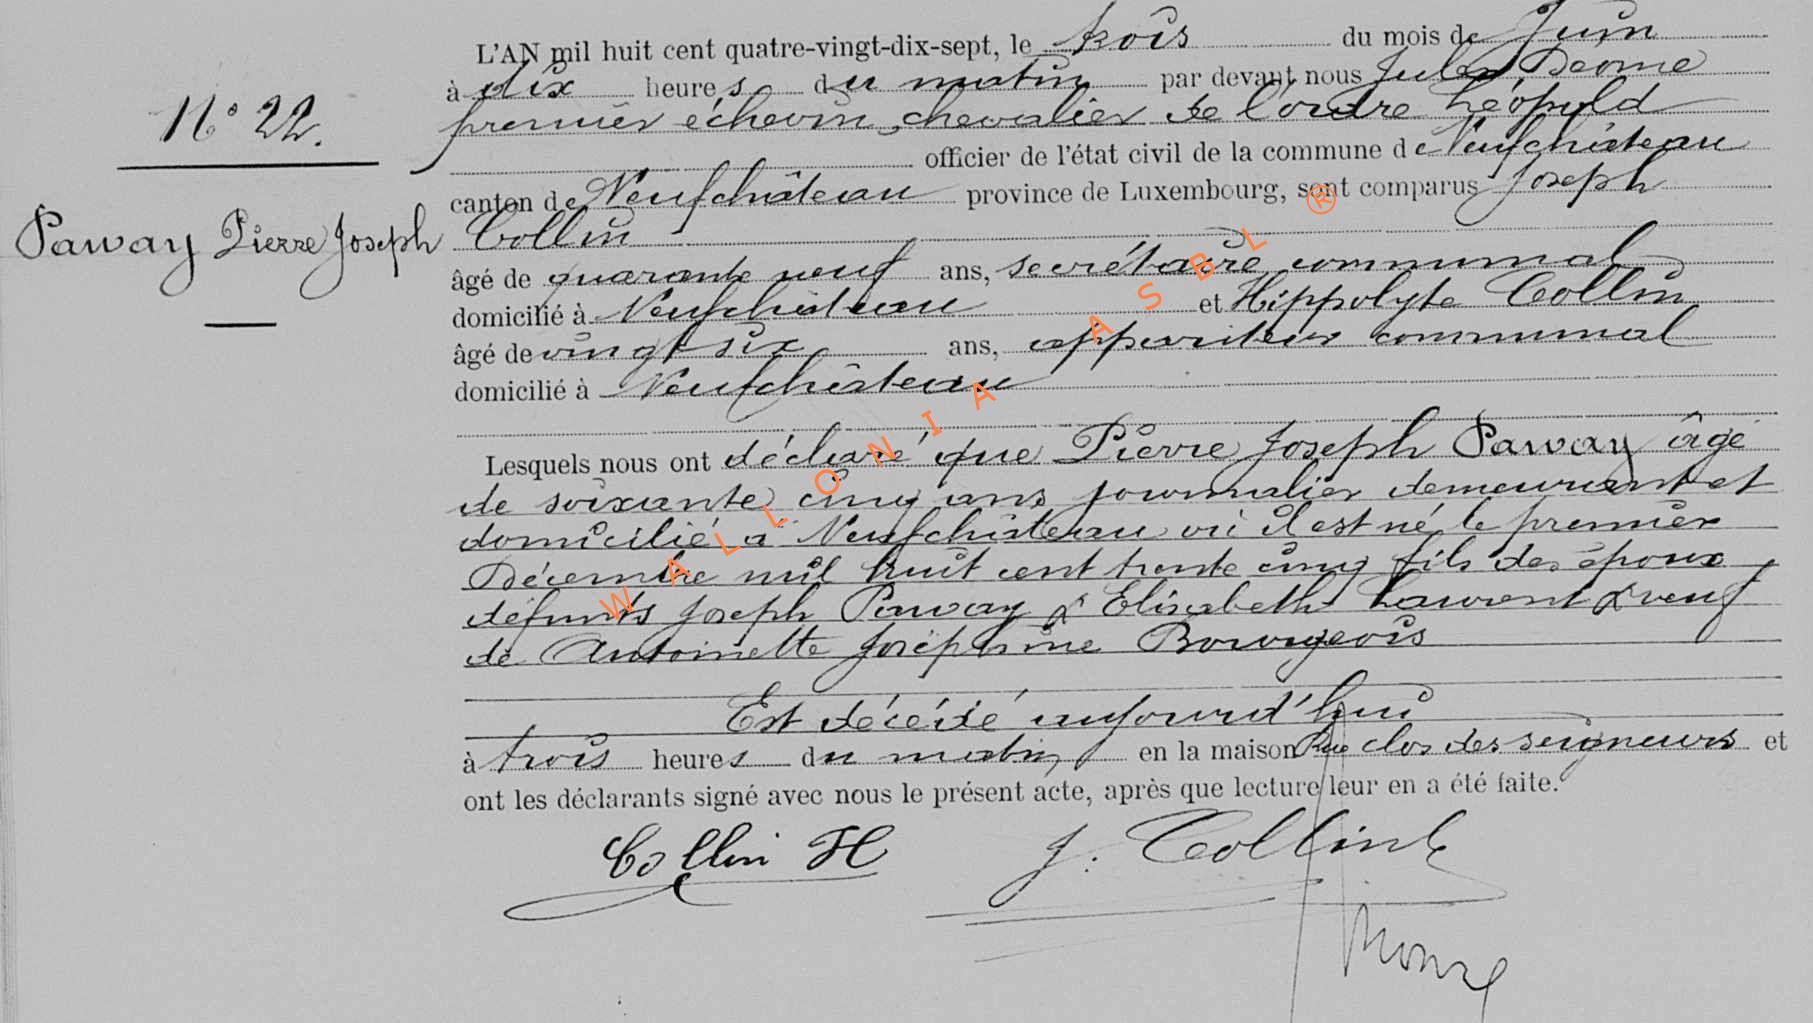 L'AN mil huit cent quatre-vingt-dix-sept, le trois du mois de Juin
à dix heures du matin par devant nous Jules
premier échevin, chevalier de l'ordre Léopold
N° 22.
officier de l'état civil de la commune de Neufchâteau
canton de Neufchâteau province de Luxembourg, sont comparus Joseph
Paway Pierre Joseph
Collin
âgé de quarante neuf ans, secrétaire communal
domicilié à Neufchâteau et Hippolyte Collin
âgé de vingt six ans, appariteur communal
domicilié à Neufchâteau
Lesquels nous ont déclaré que Pierre Joseph Paway âgé
de soixante cinq ans journalier demeurant et
domicilié à Neufchâteau où il est né le premier
Décembre mil huit cent trente cinq fils des époux
défunts Joseph Paway & Elisabeth Laurent & veuf
de Antoinette Joséphine Bourgeois
Est décédé aujourd'hui
à trois heures du matin en la maison Rue clos des seigneurs et
ont les déclarants signé avec nous le présent acte, après que lecture leur en a été faite.
Collin H J. Collin
WALLONIA ASBL ®